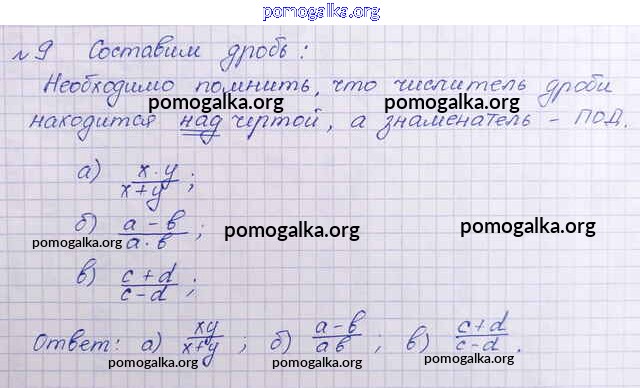 pomogalka.org
№9 Составим дробь:
Необходимо помнить, что числитель дроби
pomogalka.org pomogalka.org
находится над чертой, а знаменатель - ПОД.
а) x·y/x+y;
б) a-b/a·b;
pomogalka.org pomogalka.org pomogalka.org
в) c+d/c-d;
Ответ: а) xy/x+y; б) a-b/ab; в) c+d/c-d.
pomogalka.org pomogalka.org pomogalka.org